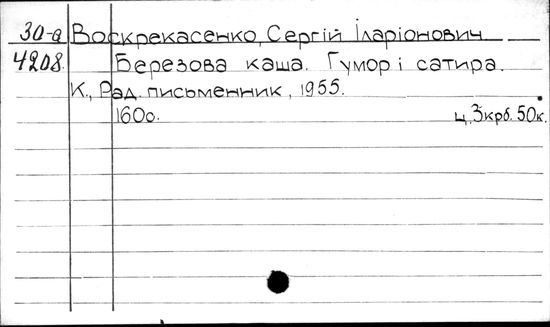 30-а Воскрекасенко, Сергій Іларіонович
4208. Березова каша. Гумор і сатира.
К., Рад. письменник, 1955.
160с. ц. 3крб. 50к.